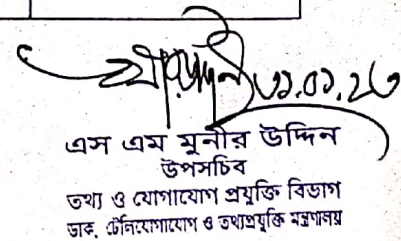 ৩১.০১.২৩
এস এম মুনীর উদ্দিন
উপসচিব
তথ্য ও যোগাযোগ প্রযুক্তি বিভাগ
ডাক, টেলিযোগাযোগ ও তথ্যপ্রযুক্তি মন্ত্রণালয়